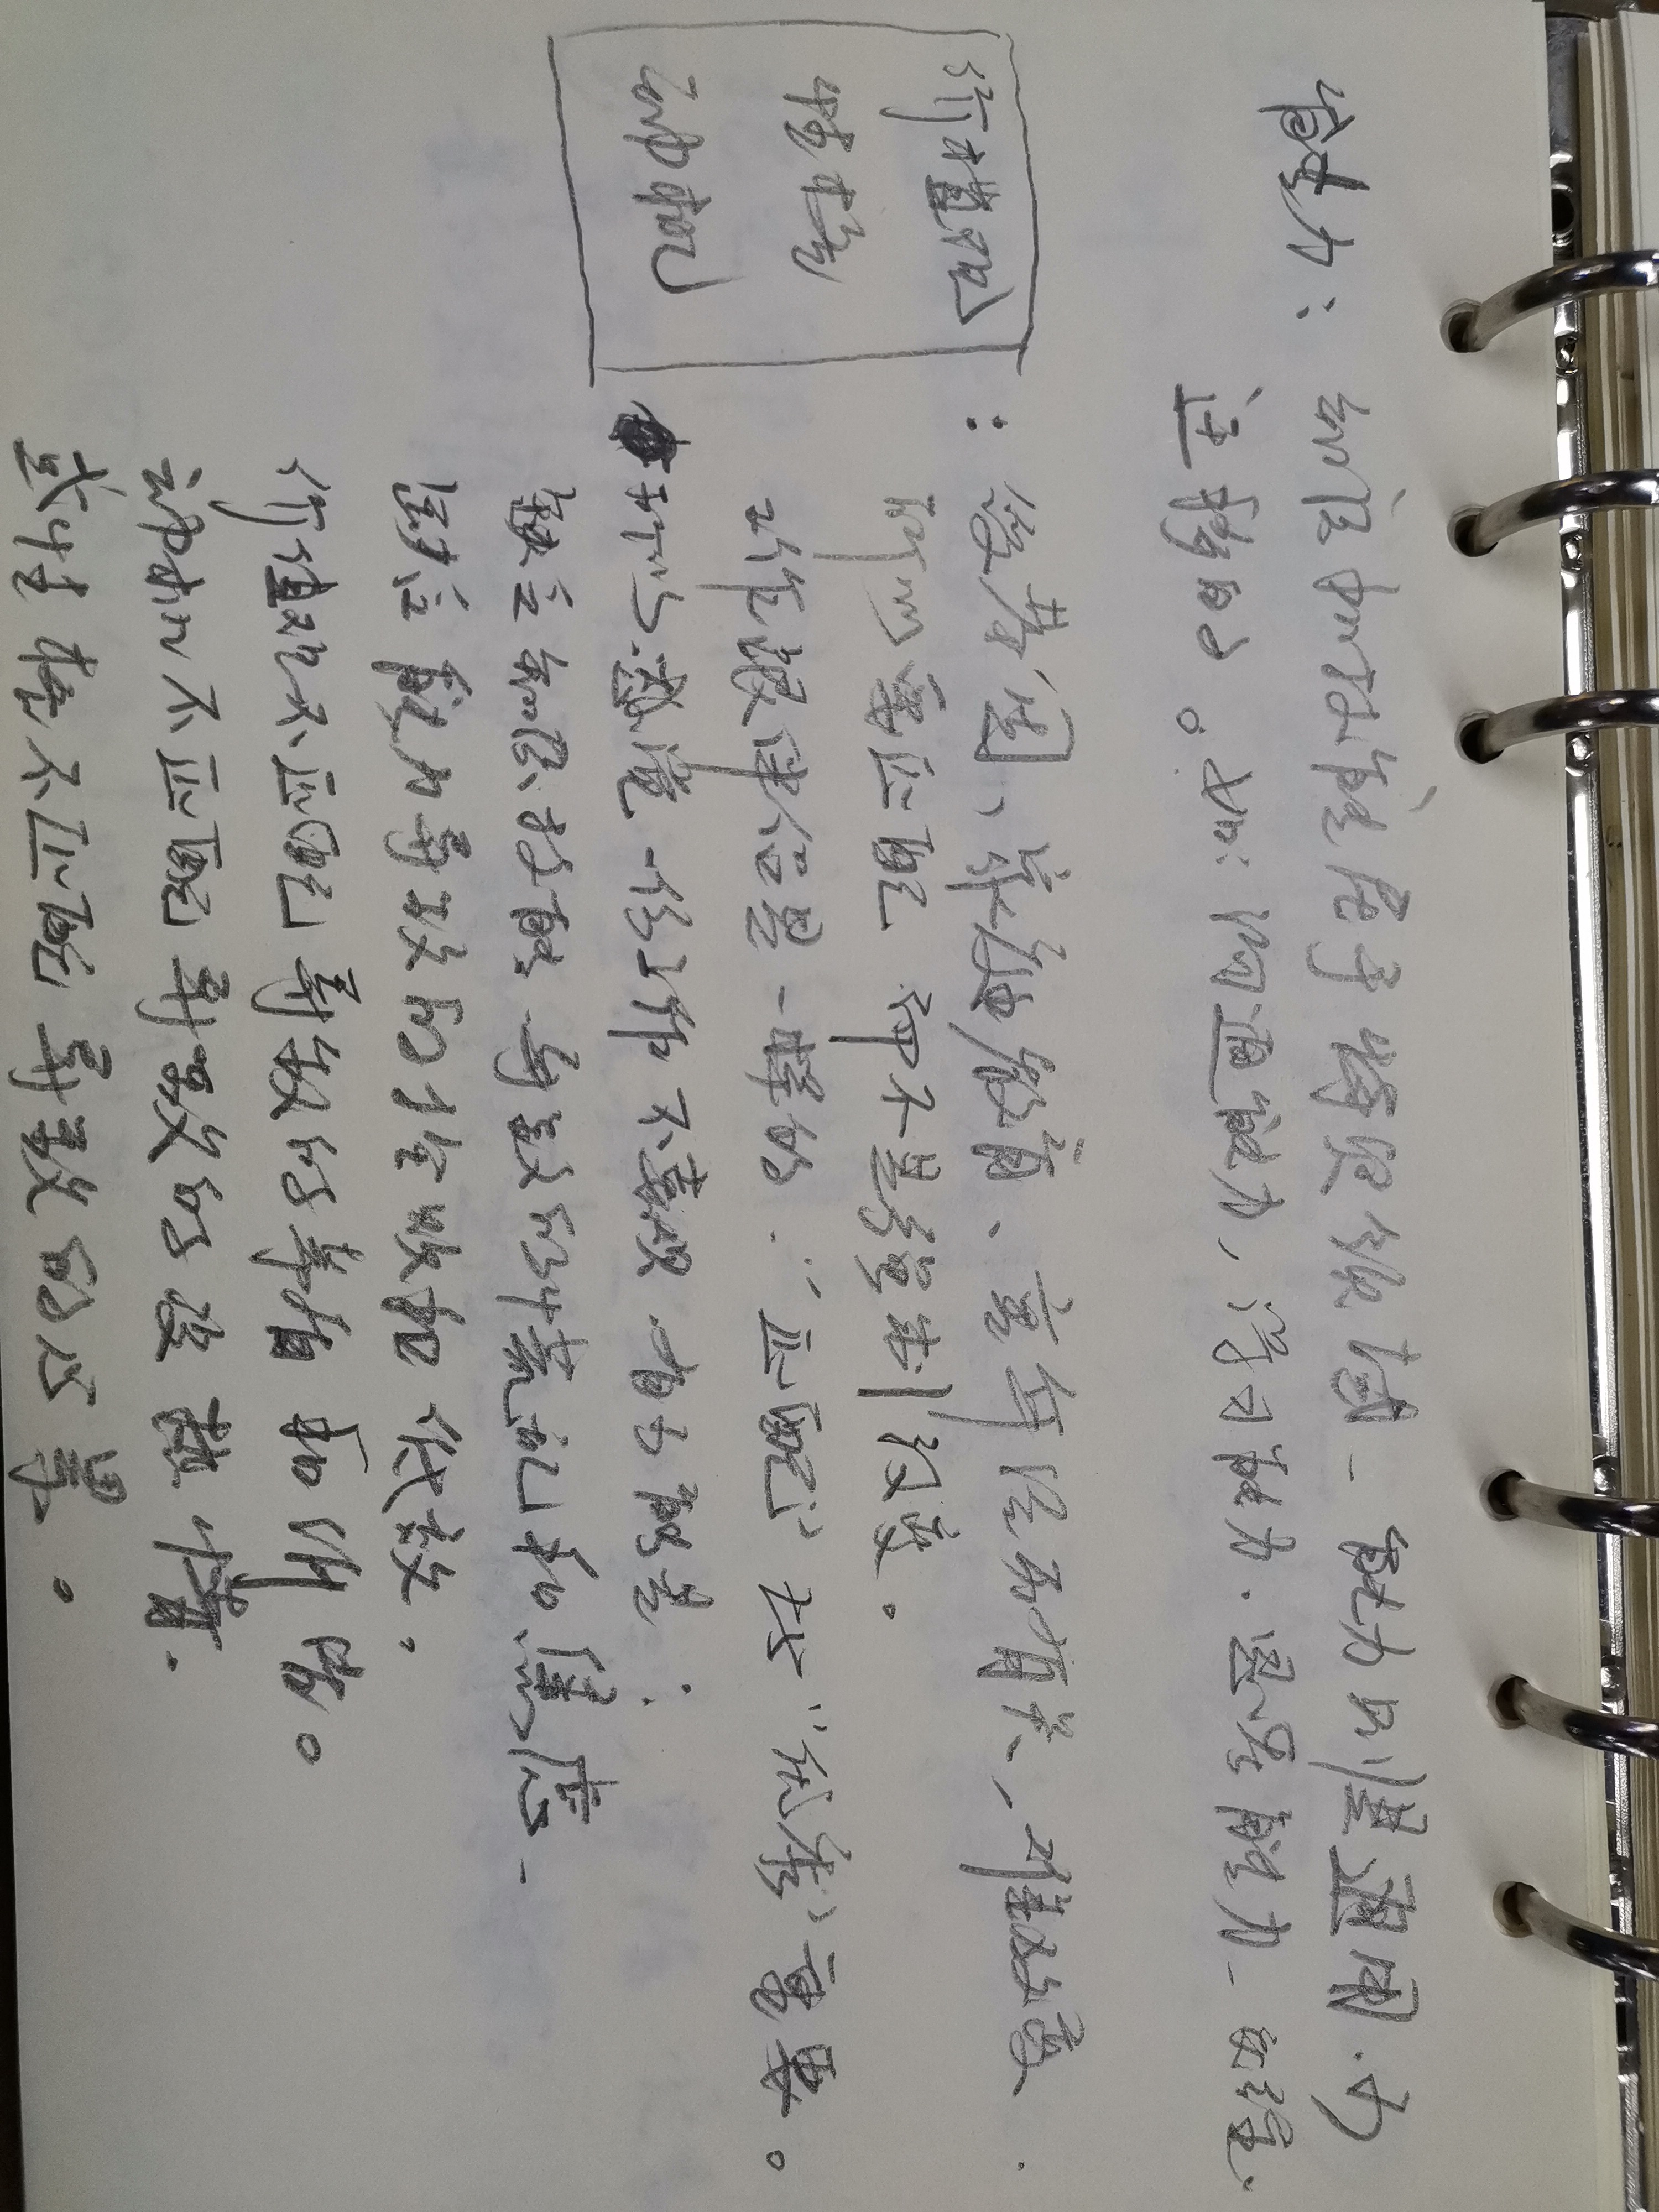 能力：知识和技能属于特定领域，能力则是通用、可
迁移的。如：沟通能力，学习能力、思考能力、
价值观
性格
动机
：受基因、家庭教育、童年经历有关，难改变.
所以要匹配 而不是强制改变。
工作跟伴侣是一样的：“匹配”比“优秀”重要。
所以感觉一份工作不喜欢 有可能是：
缺乏知识技能 导致的慌乱和焦虑、
缺乏能力导致的挫败和低效，
价值观不匹配导致的矛盾和
动机不匹配导致的没热情.
或性格不匹配导致的心累。